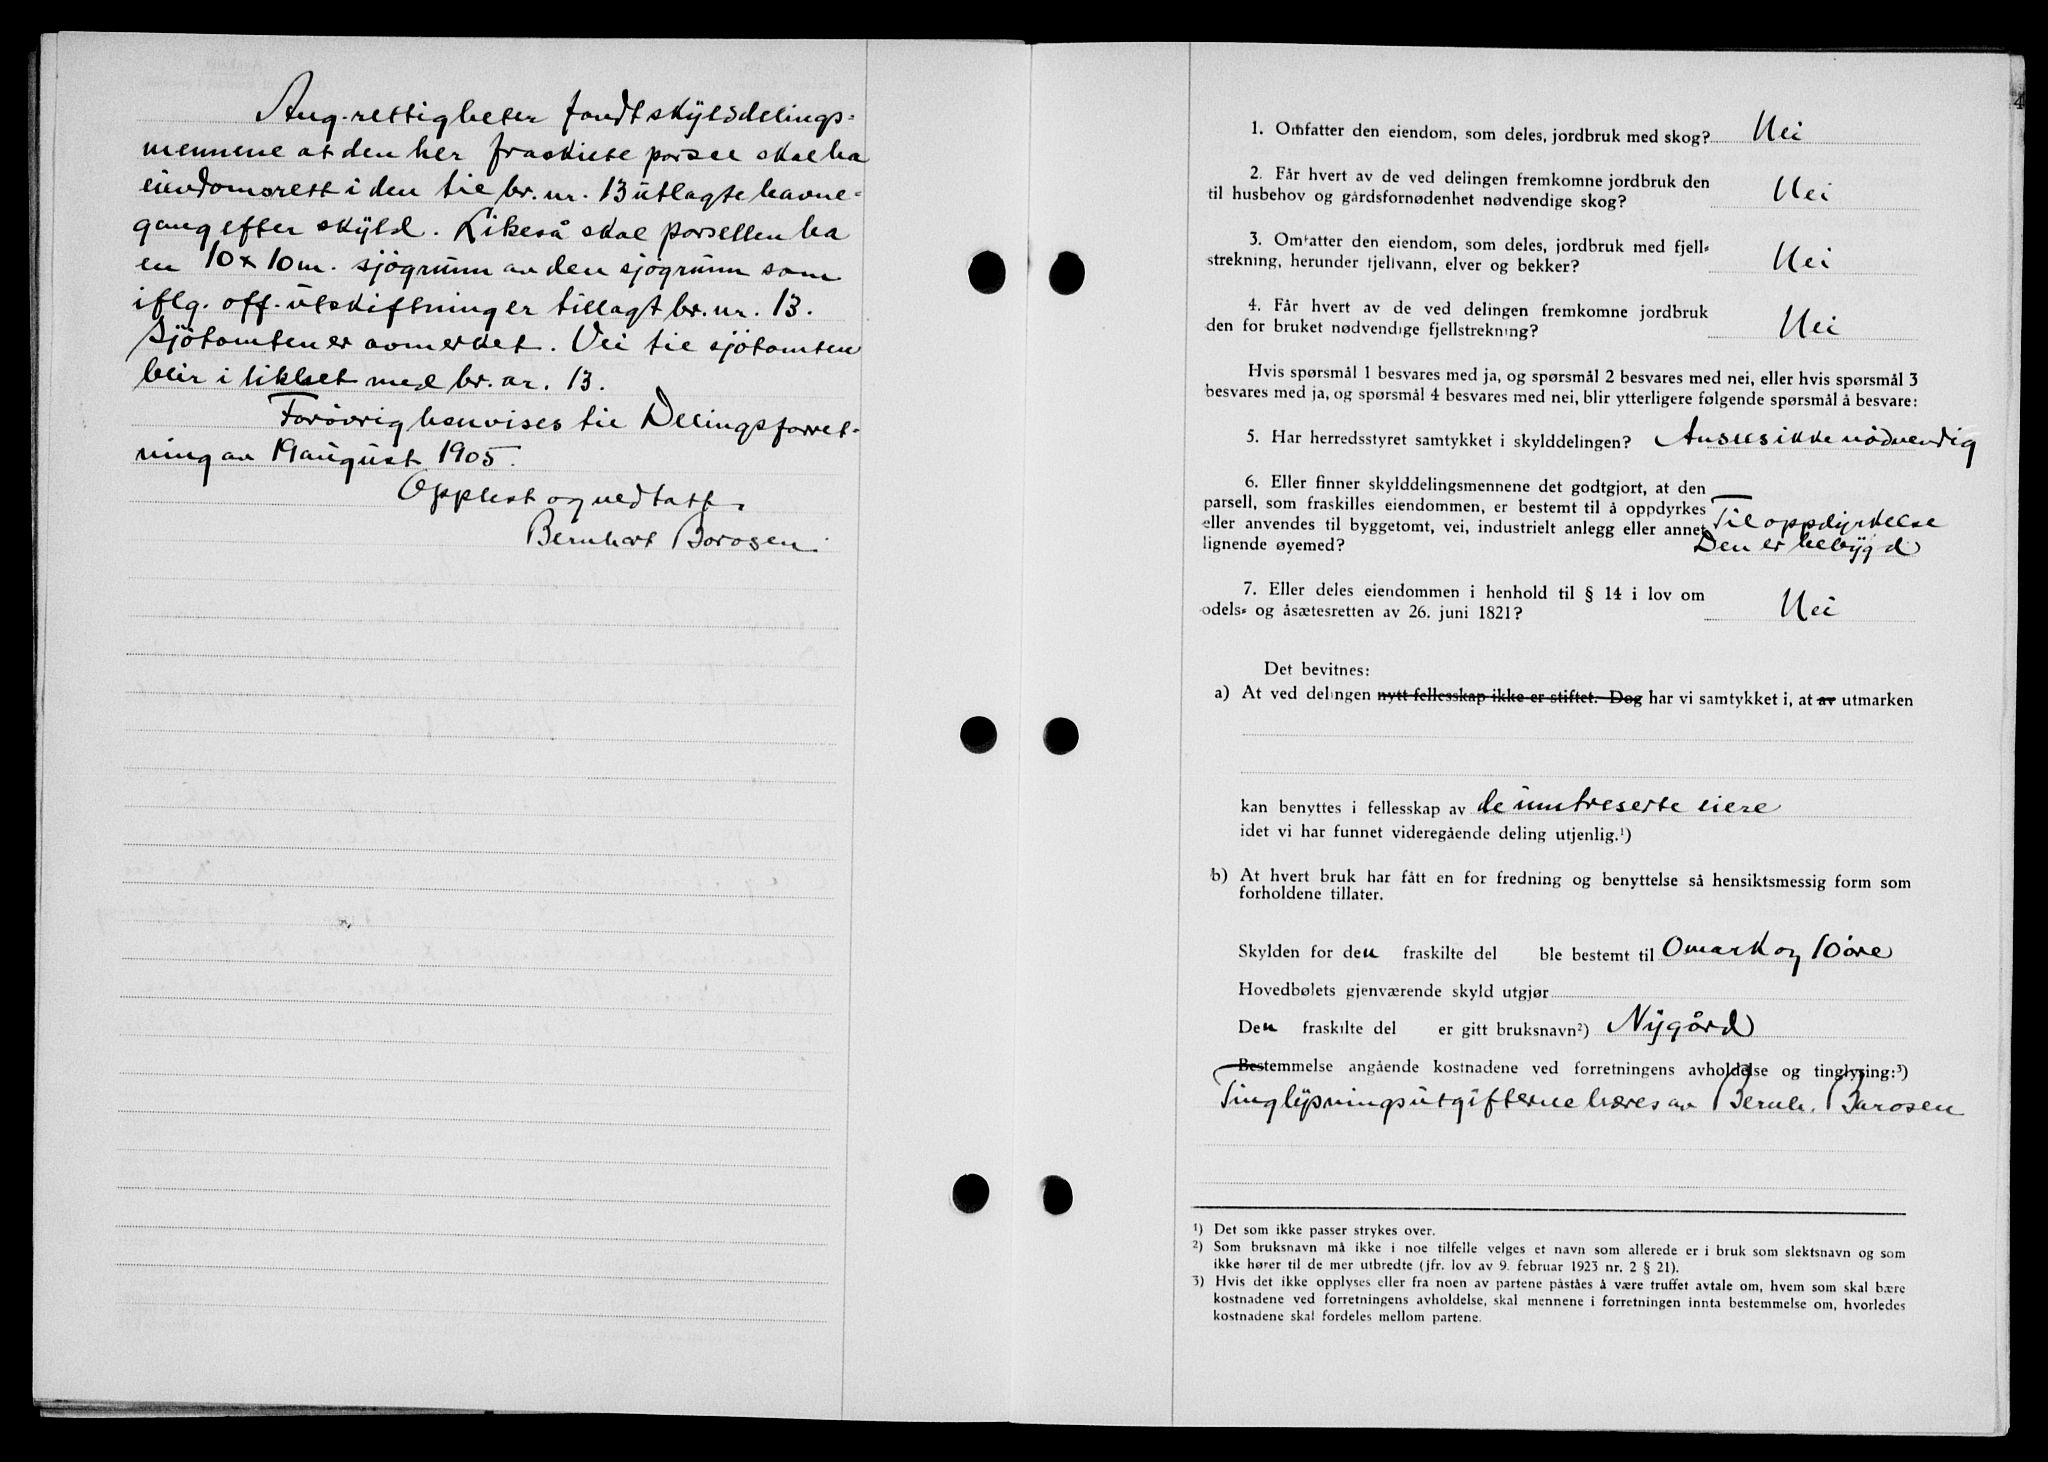 Ang. rettigheter fandt skylddelings-
mennene at den her fraskilte parsel skal ha
eiendomsrett i den til br. nr. 13 utlagte havne-
gang efter skyld. Likeså skal parsellen ha
en 10 x 10 m. sjøgrunn av den sjøgrunn som
iflg. off. utskiftning er tillagt br. nr. 13.
Sjøtomten er avmerket. Vei til sjøtomten
blir i likhet med br. nr. 13.
Forøvrig henvises til Delingsforret-
ning av 19 august 1905.
Opplest og vedtatt.
Bernhart Barosen.
4
1. Omfatter den eiendom, som deles, jordbruk med skog? Nei
2. Får hvert av de ved delingen fremkomne jordbruk den
til husbehov og gårdsfornødenhet nødvendige skog? Nei
3. Omfatter den eiendom, som deles, jordbruk med fjell-
strekning, herunder fjellvann, elver og bekker? Nei
4. Får hvert av de ved delingen fremkomne jordbruk
den for bruket nødvendige fjellstrekning? Nei
Hvis spørsmål 1 besvares med ja, og spørsmål 2 besvares med nei, eller hvis spørsmål 3
besvares med ja, og spørsmål 4 besvares med nei, blir ytterligere følgende spørsmål å besvare:
5. Har herredsstyret samtykket i skylddelingen? Ansees ikke nødvendig
6. Eller finner skylddelingsmennene det godtgjort, at den
parsell, som fraskilles eiendommen, er bestemt til å oppdyrkes
eller anvendes til byggetomt, vei, industrielt anlegg eller annet Til oppdyrkelse
lignende øyemed? Den er bebygd
7. Eller deles eiendommen i henhold til § 14 i lov om
odels- og åsætesretten av 26. juni 1821? Nei
Det bevitnes:
a) At ved delingen nytt fellesskap ikke er stiftet. Dog har vi samtykket i, at av utmarken
kan benyttes i fellesskap av de inntreserte eiere
idet vi har funnet videregående deling utjenlig.¹)
b) At hvert bruk har fått en for fredning og benyttelse så hensiktsmessig form som
forholdene tillater.
Skylden for den fraskilte del ble bestemt til 0 mark og 10 øre
Hovedbølets gjenværende skyld utgjør
Den fraskilte del er gitt bruksnavn²) Nygård
Bestemmelse angående kostnadene ved forretningens avholdelse og tinglysing:³)
Tinglysningsutgifterne bæres av Bernh. Barosen
¹) Det som ikke passer strykes over.
²) Som bruksnavn må ikke i noe tilfelle velges et navn som allerede er i bruk som slektsnavn og som
ikke hører til de mer utbredte (jfr. lov av 9. februar 1923 nr. 2 § 21).
3) Hvis det ikke opplyses eller fra noen av partene påståes å være truffet avtale om, hvem som skal bære
kostnadene ved forretningens avholdelse, skal mennene i forretningen innta bestemmelse om, hvorledes
kostnadene skal fordeles mellom partene.